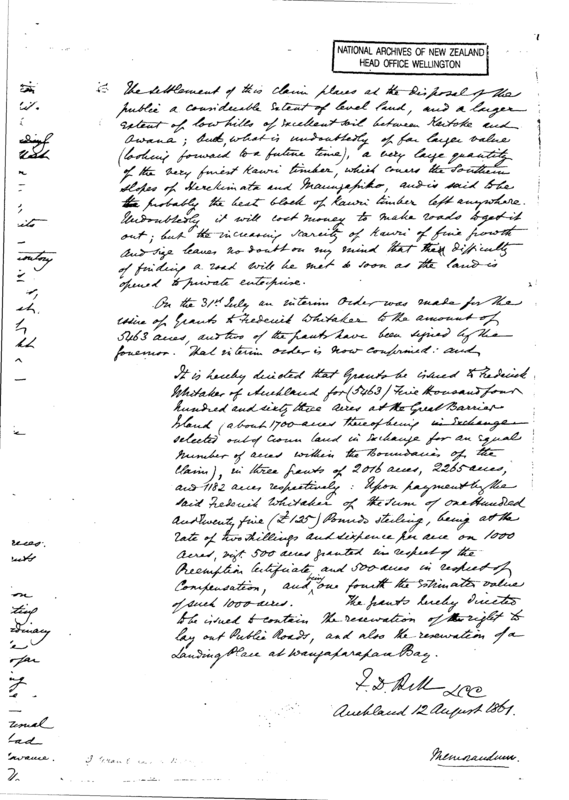 NATIONAL ARCHIVES OF NEW ZEALAND
HEAD OFFICE WELLINGTON
The settlement of this claim places at the disposal of the
public a considerable extent of level land, and a larger
extent of low hills of excellent soil between Kaitoke and
Awana; but what is undoubtedly of far larger value
(looking forward to a future time), a very large quantity
of the very finest Kawri timber, which covers the Southern
slopes of Hirakimata and Maungapiko, and is said to be
probably the best block of Kawri timber left anywhere.
Undoubtedly it will cost money to make roads to get it
out; but the increasing scarcity of Kawri of fine growth
and size leaves no doubt on my mind that the difficulty
of finding a road will be met so soon as the land is
opened to private enterprise.
On the 31st July an interim Order was made for the
issue of Grants to Frederick Whitaker to the amount of
5463 acres, and two of the grants have been signed by the
Governor. That interim order is now confirmed: and
It is hereby directed that Grants be issued to Frederick
Whitaker of Auckland for (5463) Five thousand four
hundred and sixty three acres at the Great Barrier
Island (about 1700 acres thereof being in Exchange
selected out of Crown land in Exchange for an equal
number of acres within the Boundaries of the
Claim), in three grants of 2016 acres, 2265 acres,
and 1182 acres respectively: Upon payment by the
said Frederick Whitaker of the sum of one Hundred
and Twenty five (£125) Pounds sterling, being at the
rate of two shillings and sixpence per acre on 1000
acres, vizt 500 acres granted in respect of the
Preemption Certificate, and 500 acres in respect of
Compensation, and being one fourth the Estimated value
of such 1000 acres. The grants hereby directed
to be issued to contain the reservation of the right to
lay out Public Roads, and also the reservation of a
Landing Place at Wangaparapara Bay.
F. D. Bell LCC
Auckland 12 August 1861.
Memorandum.